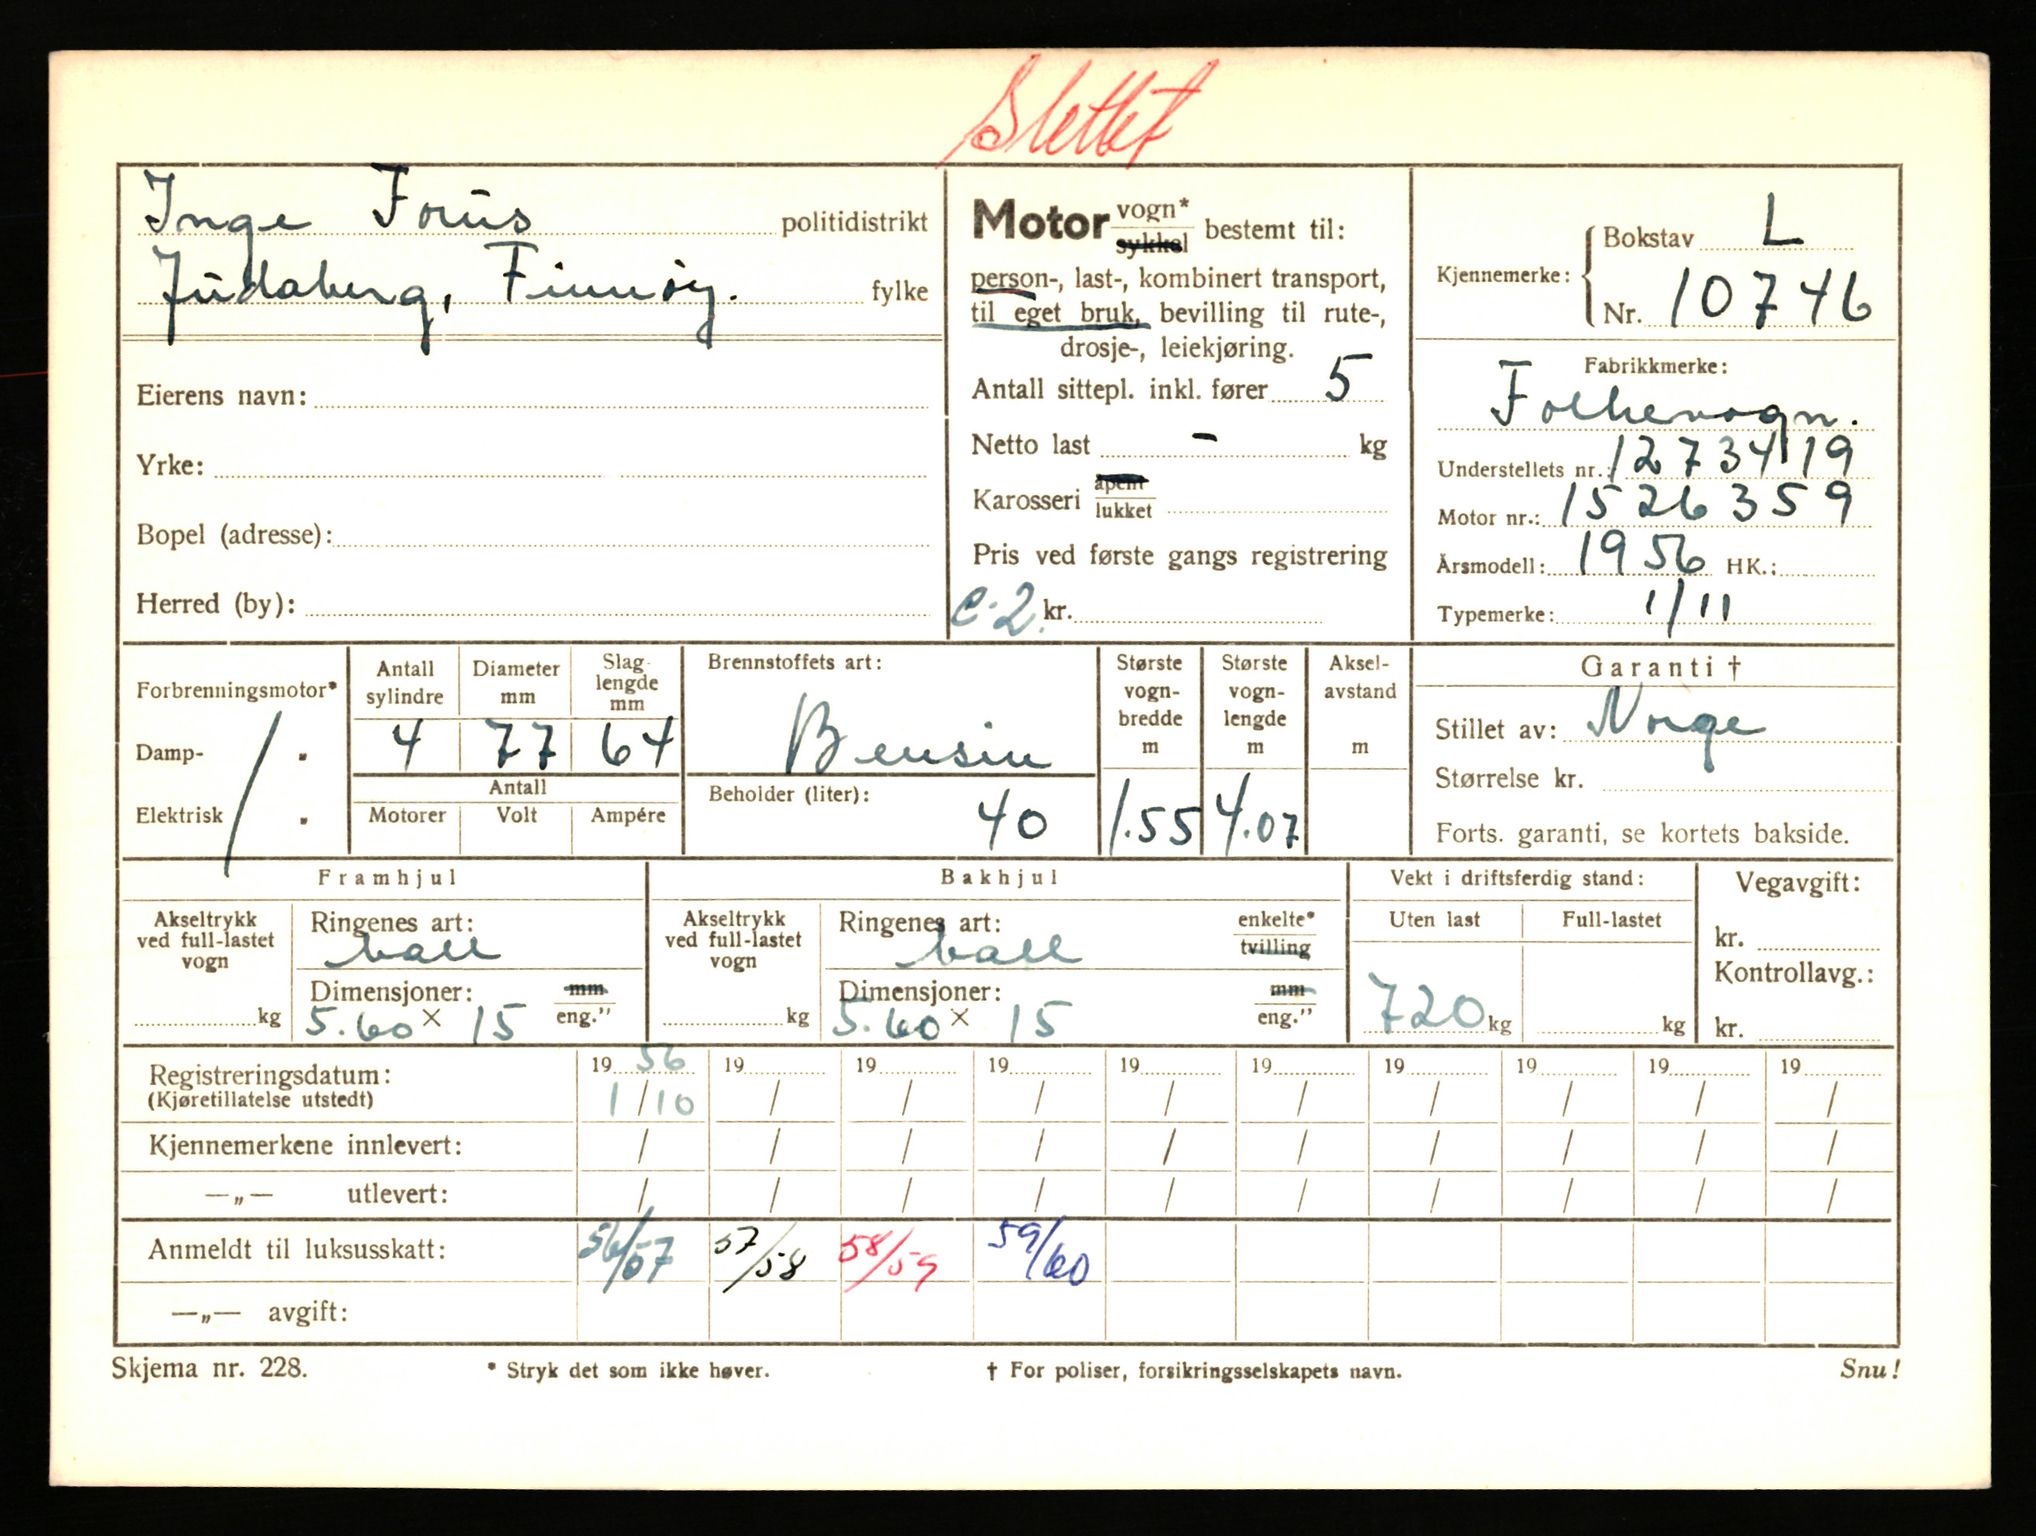 Slettet
Inge Forus politidistrikt
Judaberg, Finnøy. fylke
Eierens navn:
Yrke:
Bopel (adresse):
Herred (by):
Motor vogn* sykkel bestemt til:
person-, last-, kombinert transport,
til eget bruk, bevilling til rute-,
drosje-, leiekjøring.
Antall sittepl. inkl. fører 5
Netto last - kg
Karosseri åpent lukket
Pris ved første gangs registrering
c-2. kr.
Kjennemerke: Bokstav L
Nr. 10746
Fabrikkmerke:
Folkevogn.
Understellets nr.: 1273419
Motor nr.: 1526359
Årsmodell: 1956 HK.:
Typemerke: 1/11
Forbrenningsmotor*
Damp- "
Elektrisk "
Antall sylindre 4
Diameter mm 77
Slaglengde mm 64
Antall
Motorer Volt Ampére
Brennstoffets art:
Bensin
Beholder (liter):
40
Største vogn-bredde m 1.55
Største vogn-lengde m 4.07
Aksel-avstand m
Garanti †
Stillet av: Norge
Størrelse kr.
Forts. garanti, se kortets bakside.
Framhjul
Akseltrykk ved full-lastet vogn
kg
Ringenes art:
ball
Dimensjoner: mm
5.60 x 15 eng."
Bakhjul
Akseltrykk ved full-lastet vogn
kg
Ringenes art: enkelte*
ball tvilling
Dimensjoner: mm
5.60 x 15 eng."
Vekt i driftsferdig stand:
Uten last Full-lastet
720 kg kg
Vegavgift:
kr.
Kontrollavg.:
kr.
Registreringsdatum: 19 56 19 19 19 19 19 19 19 19 19
(Kjøretillatelse utstedt) 1/10 / / / / / / / / /
Kjennemerkene innlevert: / / / / / / / / / /
—„— utlevert: / / / / / / / / / /
Anmeldt til luksusskatt: 56/57 57/58 58/59 59/60
—„— avgift:
Skjema nr. 228. * Stryk det som ikke høver. † For poliser, forsikringsselskapets navn. Snu!